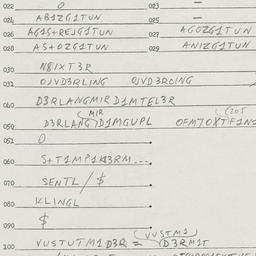 022 0 023 —
024 AB1ZG1TUN 025 —
026 AG1S+REJG1TUN 027 AGOZG1TUN
028 AS+OZG1TUN 029 ANIZG1TUN
030 N8IXT3R
031 OJVD3RLING OJVD3RCING
040 D3RLANGMIR D1MTEL3R
050 D3RLANG MIR D1MGUPL
051 0
060
070 SENTL / $
080 KLINGL
090 $
100 VUSTUTM1 D3R = VUSTM1 D3RM1T